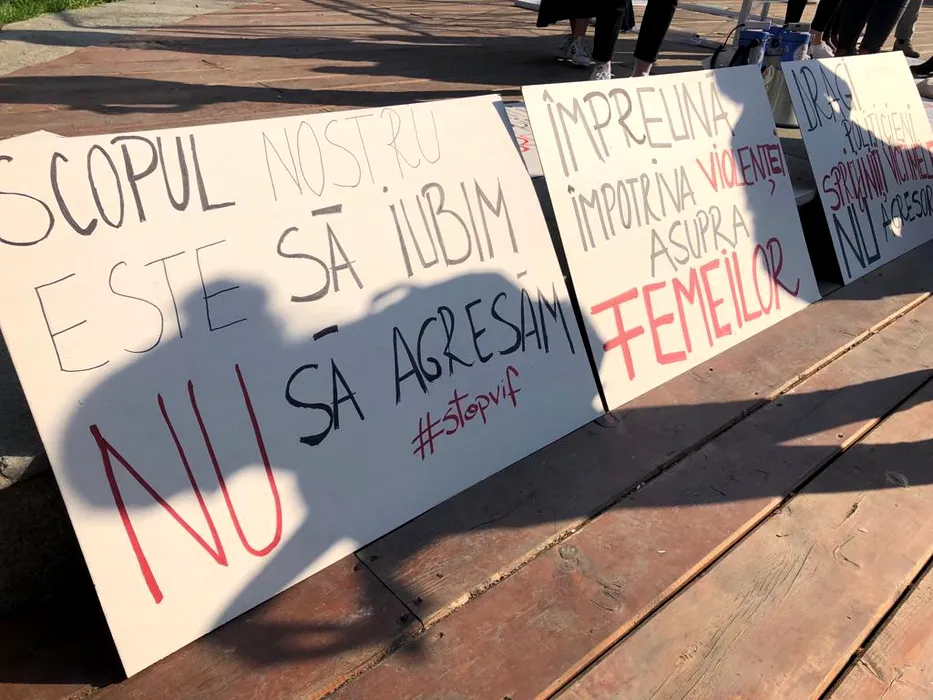 SCOPUL NOSTRU
ESTE SĂ IUBIM
NU SĂ AGRESĂM
#stopvif
ÎMPREUNĂ
ÎMPOTRIVA VIOLENȚEI
ASUPRA
FEMEILOR
DRAGI
POLITICIENI,
SPRIJINIȚI VICTIMELE
NU AGRESORII